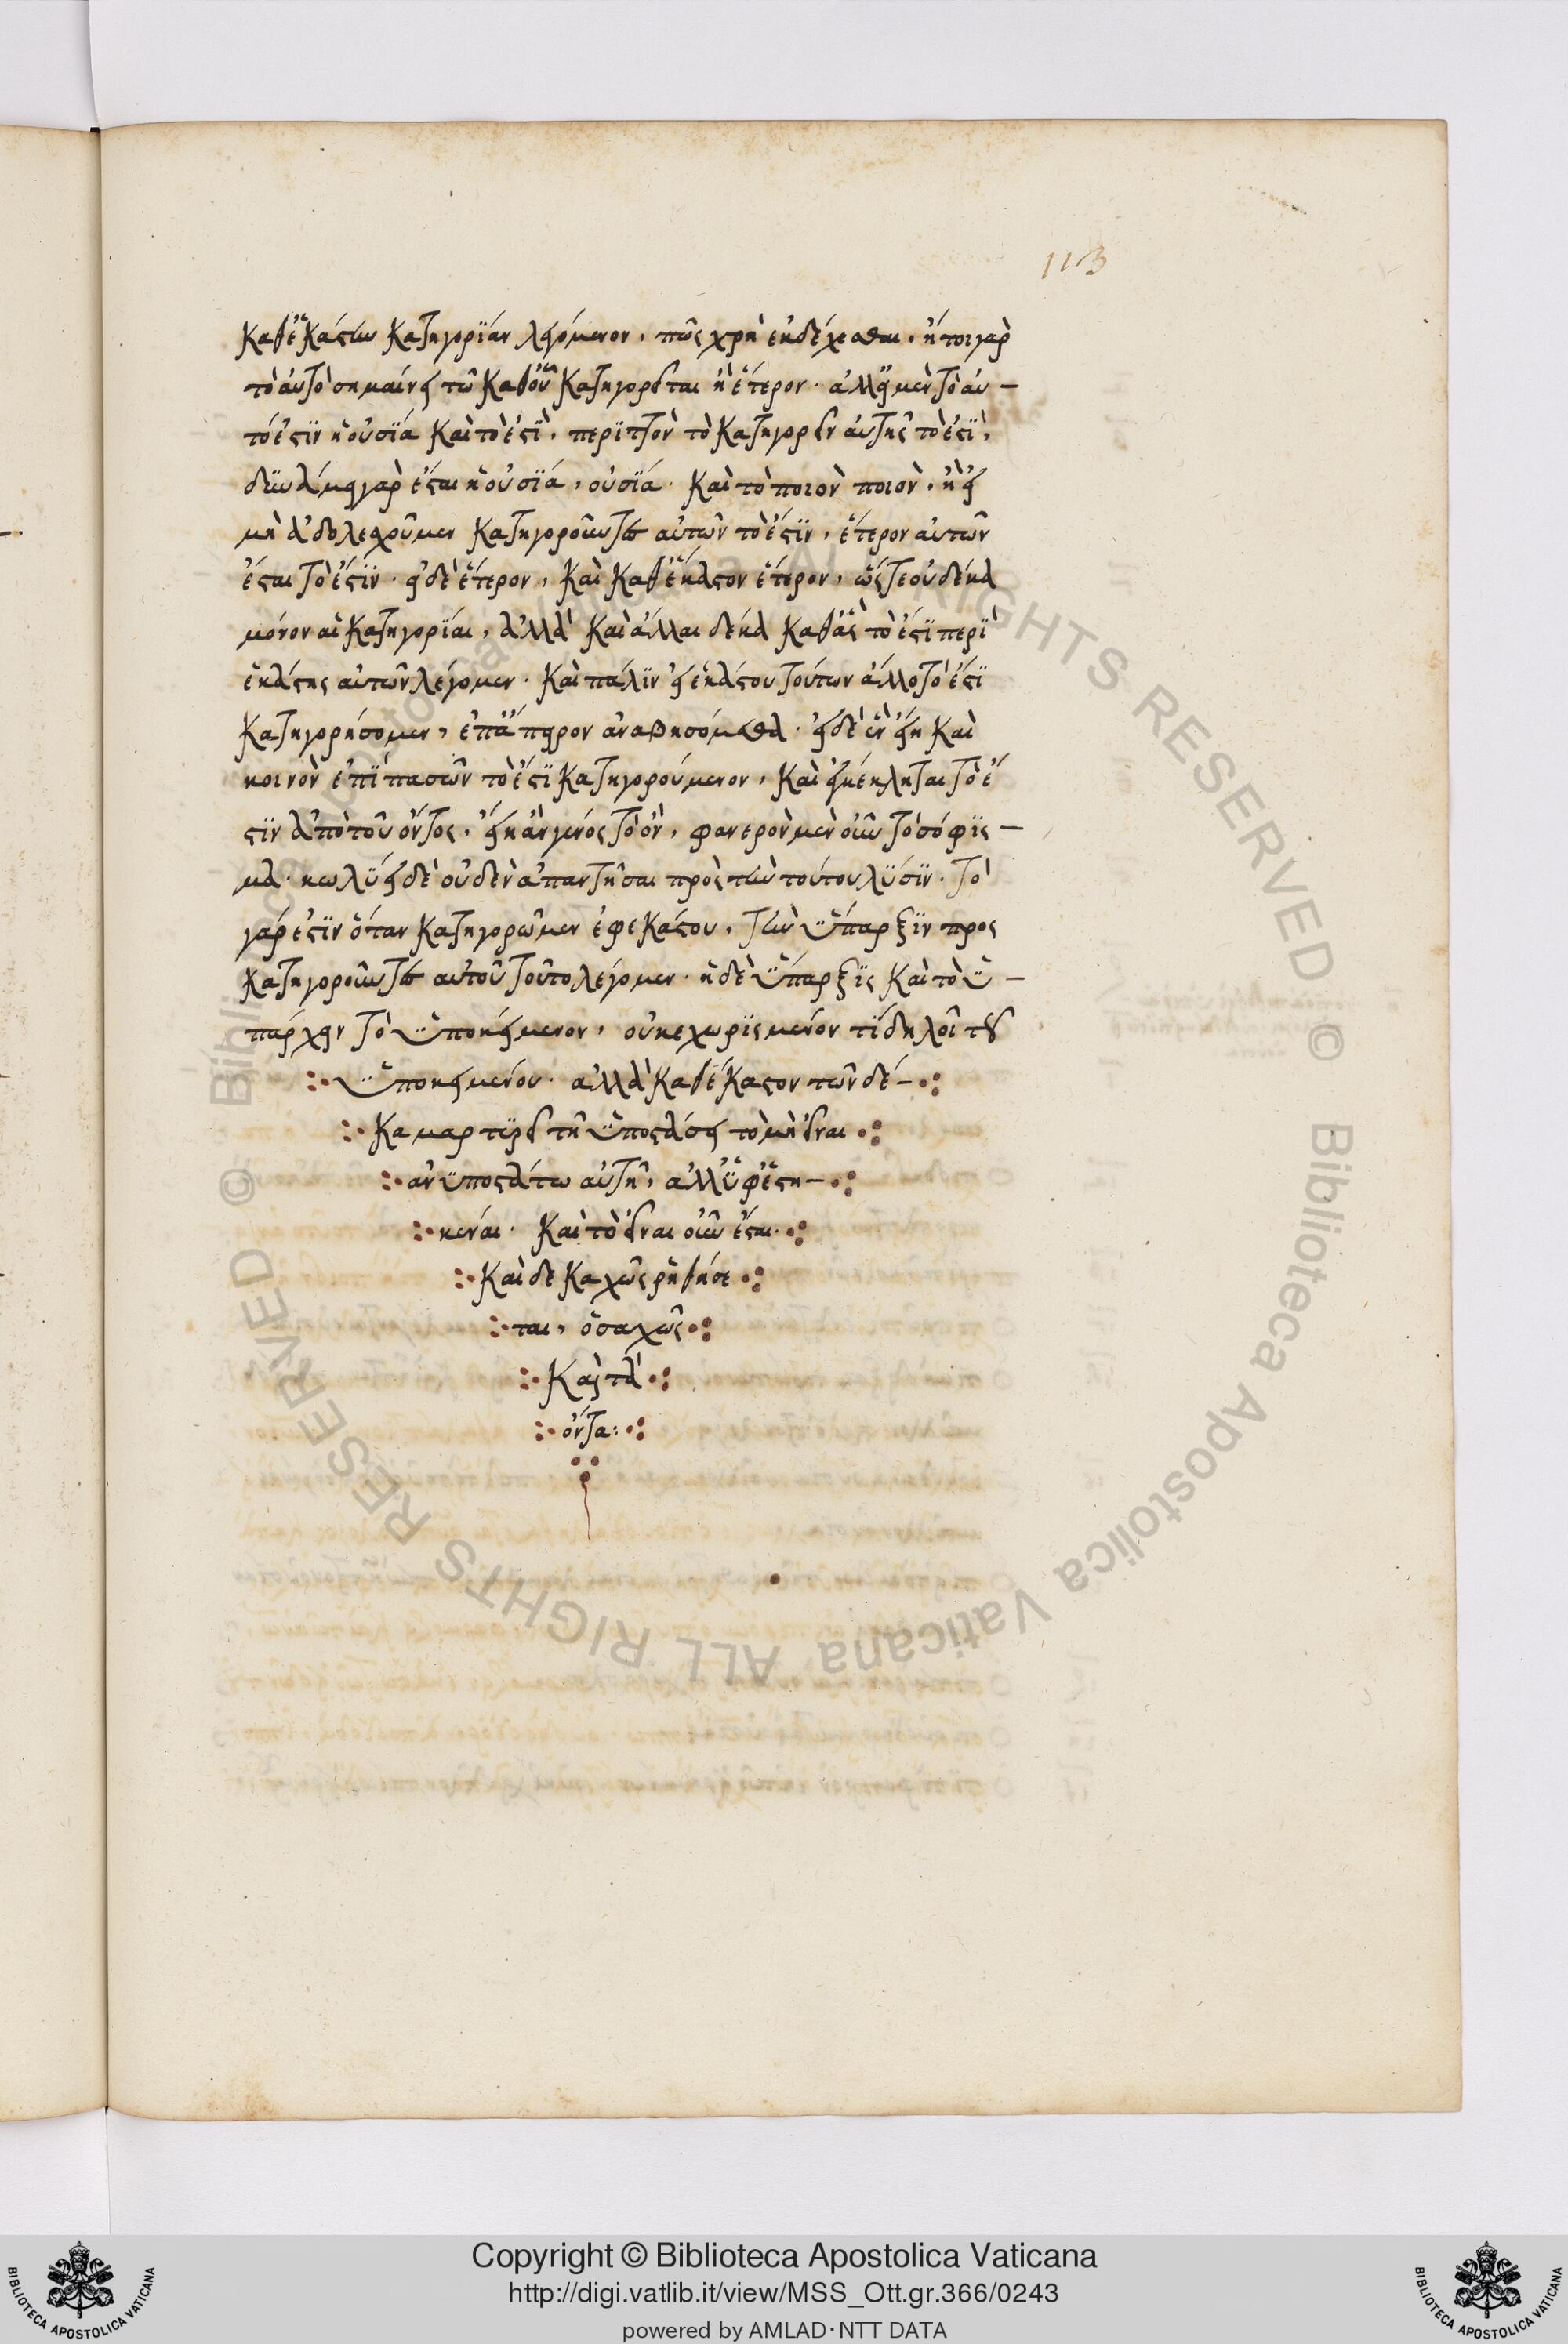 113
καθ' ἑκάστην κατηγορίαν λεγόμενον, πῶς χρὴ ἐκδέχεσθαι. ἤτοι γὰρ
τὸ αὐτὸ σημαίνει τῷ καθ' οὗ κατηγορεῖται ἢ ἕτερον. ἀλλ' εἰ μὲν τὸ αὐ-
τό ἐστιν ἡ οὐσία καὶ τὸ ἐστὶ, περιττὸν τὸ κατηγορεῖν αὐτῆς τὸ ἐστὶ,
δυνάμει γὰρ ἔσται ἡ οὐσία, οὐσία. καὶ τὸ ποιὸν ποιὸν. ἢ εἰ
μὴ ἀδολεσχοῦμεν κατηγοροῦντες αὐτῶν τὸ ἔστιν, ἕτερον αὐτῶν
ἔσται τὸ ἔστιν. εἰ δὲ ἕτερον, καὶ καθ' ἕκαστον ἕτερον, ὥστε οὐ δέκα
μόνον αἱ κατηγορίαι, ἀλλὰ καὶ ἄλλαι δέκα καθ' ἃς τὸ ἐστὶ περὶ
ἑκάστης αὐτῶν λέγομεν. καὶ πάλιν εἰ ἑκάστου τούτων ἄλλο τὸ ἐστὶ
κατηγορήσομεν, ἐπ' ἄπειρον ἀναβησόμεθα. εἰ δὲ ἓν εἴη καὶ
κοινὸν ἐπὶ πασῶν τὸ ἐστὶ κατηγορούμενον, καὶ ἐγκέκλιται τὸ ἔ
στιν ἀπὸ τοῦ ὄντος, εἴη ἂν γένος τὸ ὄν, φανερὸν μὲν οὖν τὸ σόφισ-
μα. κωλύει δὲ οὐδὲν ἀπαντῆσαι πρὸς τὴν τούτου λύσιν. τὸ
γάρ ἐστιν ὅταν κατηγορῶμεν ἐφ' ἑκάστου, τὴν ὕπαρξιν προς
κατηγοροῦντες αὐτοῦ τοῦτο λέγομεν. ἡ δὲ ὕπαρξις καὶ τὸ ὑ-
πάρχειν τὸ ὑποκείμενον, οὐ κεχωρισμένον τί δηλοῖ τοῦ
ὑποκειμένου. ἀλλὰ καθ' ἕκαστον τῶν δέ-
κα μαρτυρεῖ τῇ ὑποστάσει τὸ μὴ εἶναι
ἀνυπόστατω αὐτῇ, ἀλλ' ὑφεστη-
κέναι. καὶ τὸ εἶναι οὖν ἔσται.
καὶ δεκαχῶς ῥηθήσε
ται, ὁσαχῶς
καὶ τὰ
ὄντα:
Copyright © Biblioteca Apostolica Vaticana
http://digi.vatlib.it/view/MSS_Ott.gr.366/0243
powered by AMLAD·NTT DATA
BIBLIOTECA APOSTOLICA VATICANA
BIBLIOTECA APOSTOLICA VATICANA
© Biblioteca Apostolica Vaticana ALL RIGHTS RESERVED © Biblioteca Apostolica Vaticana ALL RIGHTS RESERVED